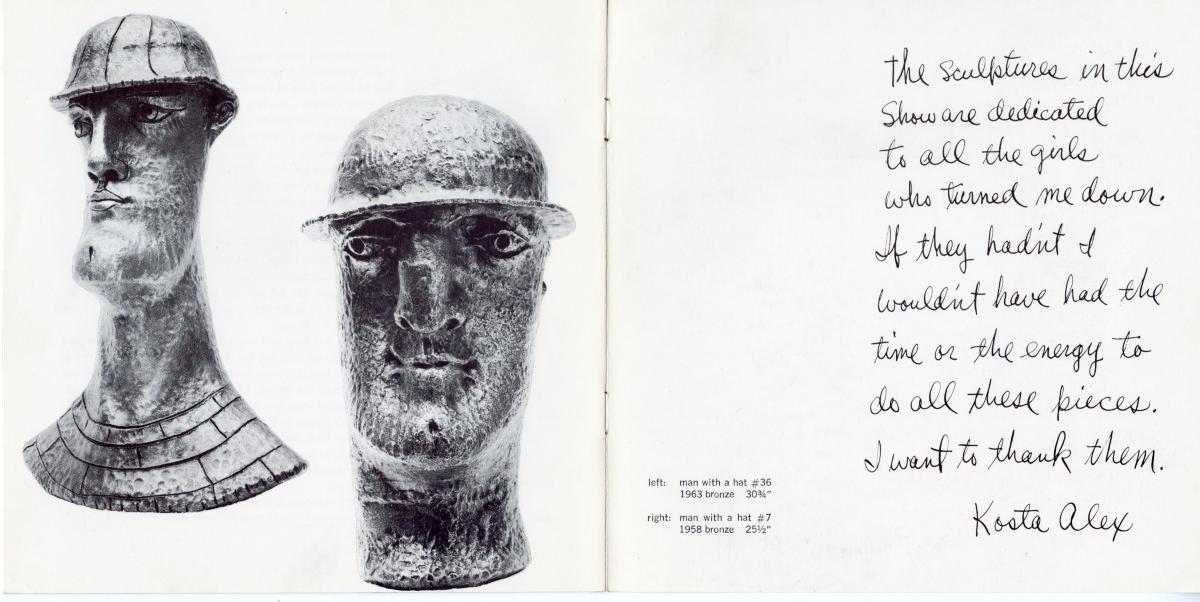 left: man with a hat #36
1963 bronze 30¾"
right: man with a hat #7
1958 bronze 25½"
The sculptures in this
Show are dedicated
to all the girls
who turned me down.
If they hadn't I
wouldn't have had the
time or the energy to
do all these pieces.
I want to thank them.
Kosta Alex